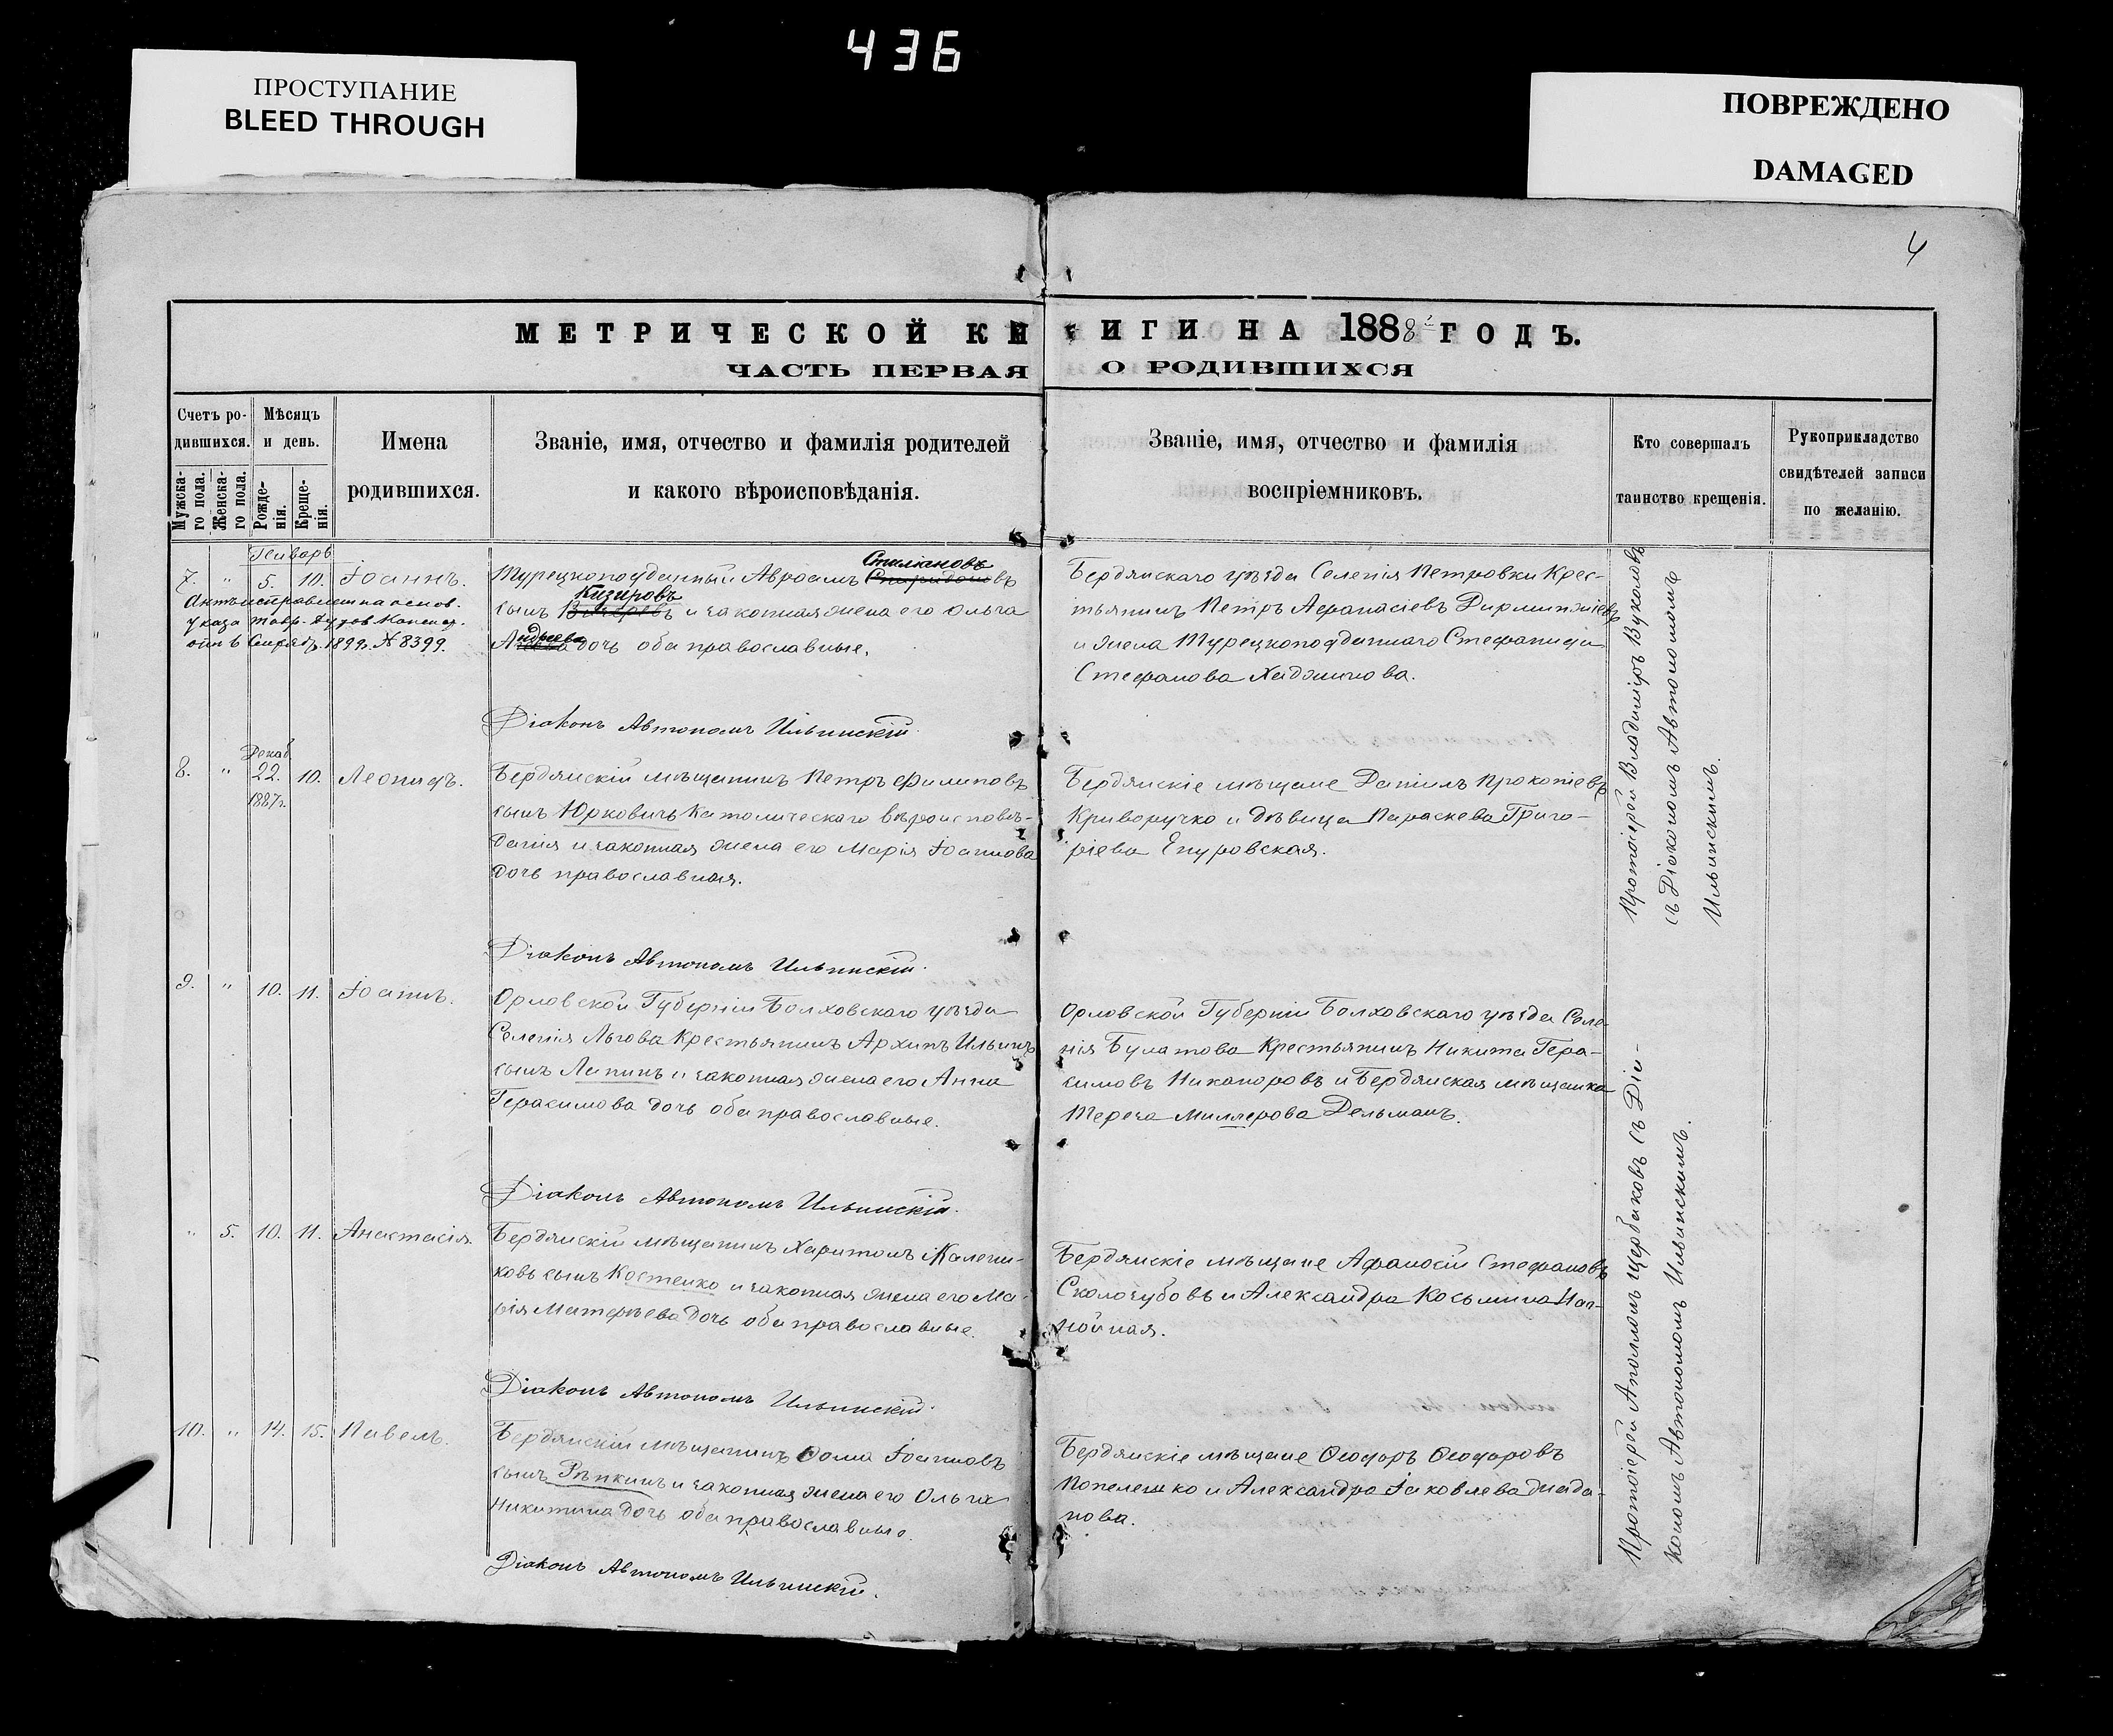 436
ПРОСТУПАНИЕ
BLEED THROUGH
ПОВРЕЖДЕНО
DAMAGED
4
МЕТРИЧЕСКОЙ КНИГИ НА 1888 ГОДЪ.
ЧАСТЬ ПЕРВАЯ О РОДИВШИХСЯ
Счетъ ро-
дившихся.
Мужска-
го пола.
Женска-
го пола.
Мѣсяцъ
и день.
Рожде-
нія.
Креще-
нія.
Имена
родившихся.
Званіе, имя, отчество и фамилія родителей
и какого вѣроисповѣданія.
Званіе, имя, отчество и фамилія
воспріемниковъ.
Кто совершалъ
таинство крещенія.
Рукоприкладство
свидѣтелей записи
по желанію.
Январь
7. " 5. 10. Іоаннъ.
Актъ исправленъ на основ.
указа Тавр. Духов. Консист.
отъ 6 Сентяб. 1899 г. № 8399.
Стиліановъ
Турецкоподданный Авраамъ
Кизировъ
сынъ и законная жена его Ольга
Андреева
дочь оба православные.
Бердянскаго уѣзда Селенія Петровки Крес-
тьянинъ Петръ Афанасіевъ
и жена Турецкоподданнаго Стефанида
Стефанова Хаджинова.
Діаконъ Автономъ Ильинскій.
Декаб.
8. " 22. 10. Леонидъ.
1887 г.
Бердянскій мѣщанинъ Петръ Филиповъ
сынъ Юрковичъ Католическаго вѣроисповѣ-
данія и законная жена его Марія Іоаннова
дочь православная.
Бердянскіе мѣщане Даніилъ Прокопіевъ
Криворучко и дѣвица Параскева Григо-
ріева Епуровская.
Протоіерей Владиміръ Вуколовъ
съ Діакономъ Автономомъ
Ильинскимъ.
Діаконъ Автономъ Ильинскій.
9. " 10. 11. Іоаннъ.
Орловской Губерніи Болховскаго уѣзда
Селенія Льгова Крестьянинъ Архипъ Ильинъ
сынъ Лапинъ и законная жена его Анна
Герасимова дочь оба православные.
Орловской Губерніи Болховскаго уѣзда Селе-
нія Булатова Крестьянинъ Никита Гера-
симовъ Никаноровъ и Бердянская мѣщанка
Тереза Миллерова Дельманъ.
Діаконъ Автономъ Ильинскій.
" 5. 10. 11. Анастасія.
Бердянскій мѣщанинъ Харитонъ Калени-
ковъ сынъ Костенко и законная жена его Ма-
рія Матѳеева дочь оба православные.
Бердянскіе мѣщане Афанасій Стефановъ
Сколозубовъ и Александра Косьмина
Діаконъ Автономъ Ильинскій.
10. " 14. 15. Павелъ.
Бердянскій мѣщанинъ Ѳома Іоанновъ
сынъ Рѣпкинъ и законная жена его Ольга
Никитина дочь оба православные.
Бердянскіе мѣщане Ѳеодоръ Ѳеодоровъ
Попелешко и Александра Іаковлева Жада-
нова.
Протоіерей Аполлонъ Щербаковъ съ Діа-
кономъ Автономомъ Ильинскимъ.
Діаконъ Автономъ Ильинскій.